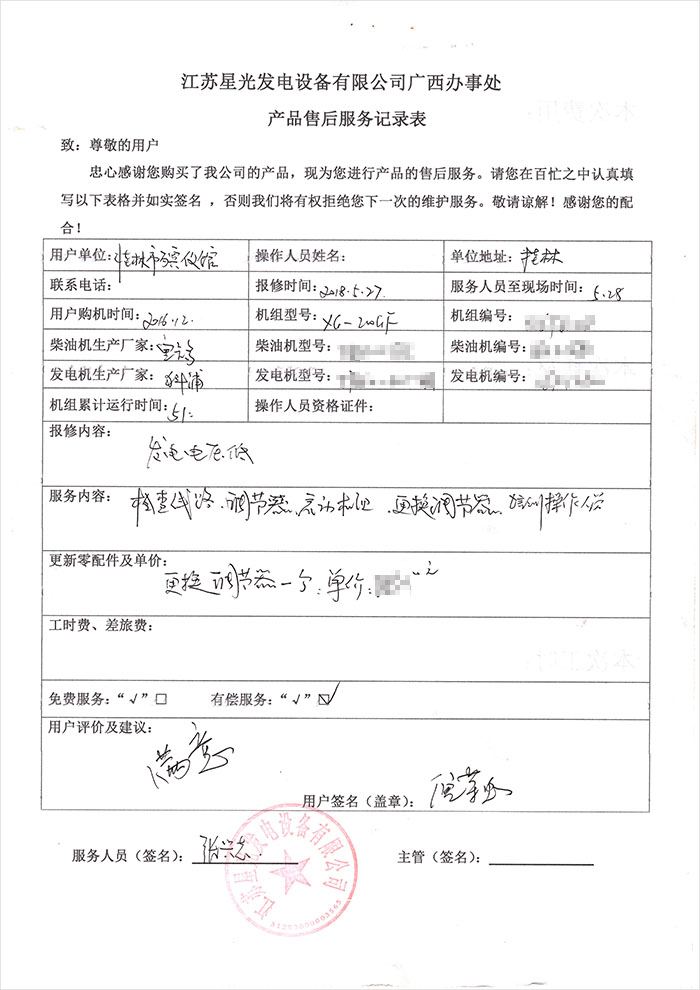 江苏星光发电设备有限公司广西办事处
产品售后服务记录表
致：尊敬的用户
忠心感谢您购买了我公司的产品，现为您进行产品的售后服务。请您在百忙之中认真填
写以下表格并如实签名，否则我们将有权拒绝您下一次的维护服务。敬请谅解！感谢您的配
合！
用户单位：桂林市殡仪馆 操作人员姓名： 单位地址：桂林
联系电话： 报修时间：2018.5.27. 服务人员至现场时间：5.28
用户购机时间：2016.12. 机组型号：XG-200GF 机组编号：
柴油机生产厂家： 柴油机型号： 柴油机编号：
发电机生产厂家：科浦 发电机型号： 发电机编号：
机组累计运行时间：51. 操作人员资格证件：
报修内容：
发电电压低
服务内容：检查线路、调节器、启动机组、更换调节器、培训操作人员
更新零配件及单价：
更换调节器一个；单价： 元
工时费、差旅费：
免费服务：“√”□ 有偿服务：“√”☑
用户评价及建议：
满意
用户签名（盖章）：
服务人员（签名）：张兴志 主管（签名）：
江苏星光发电设备有限公司